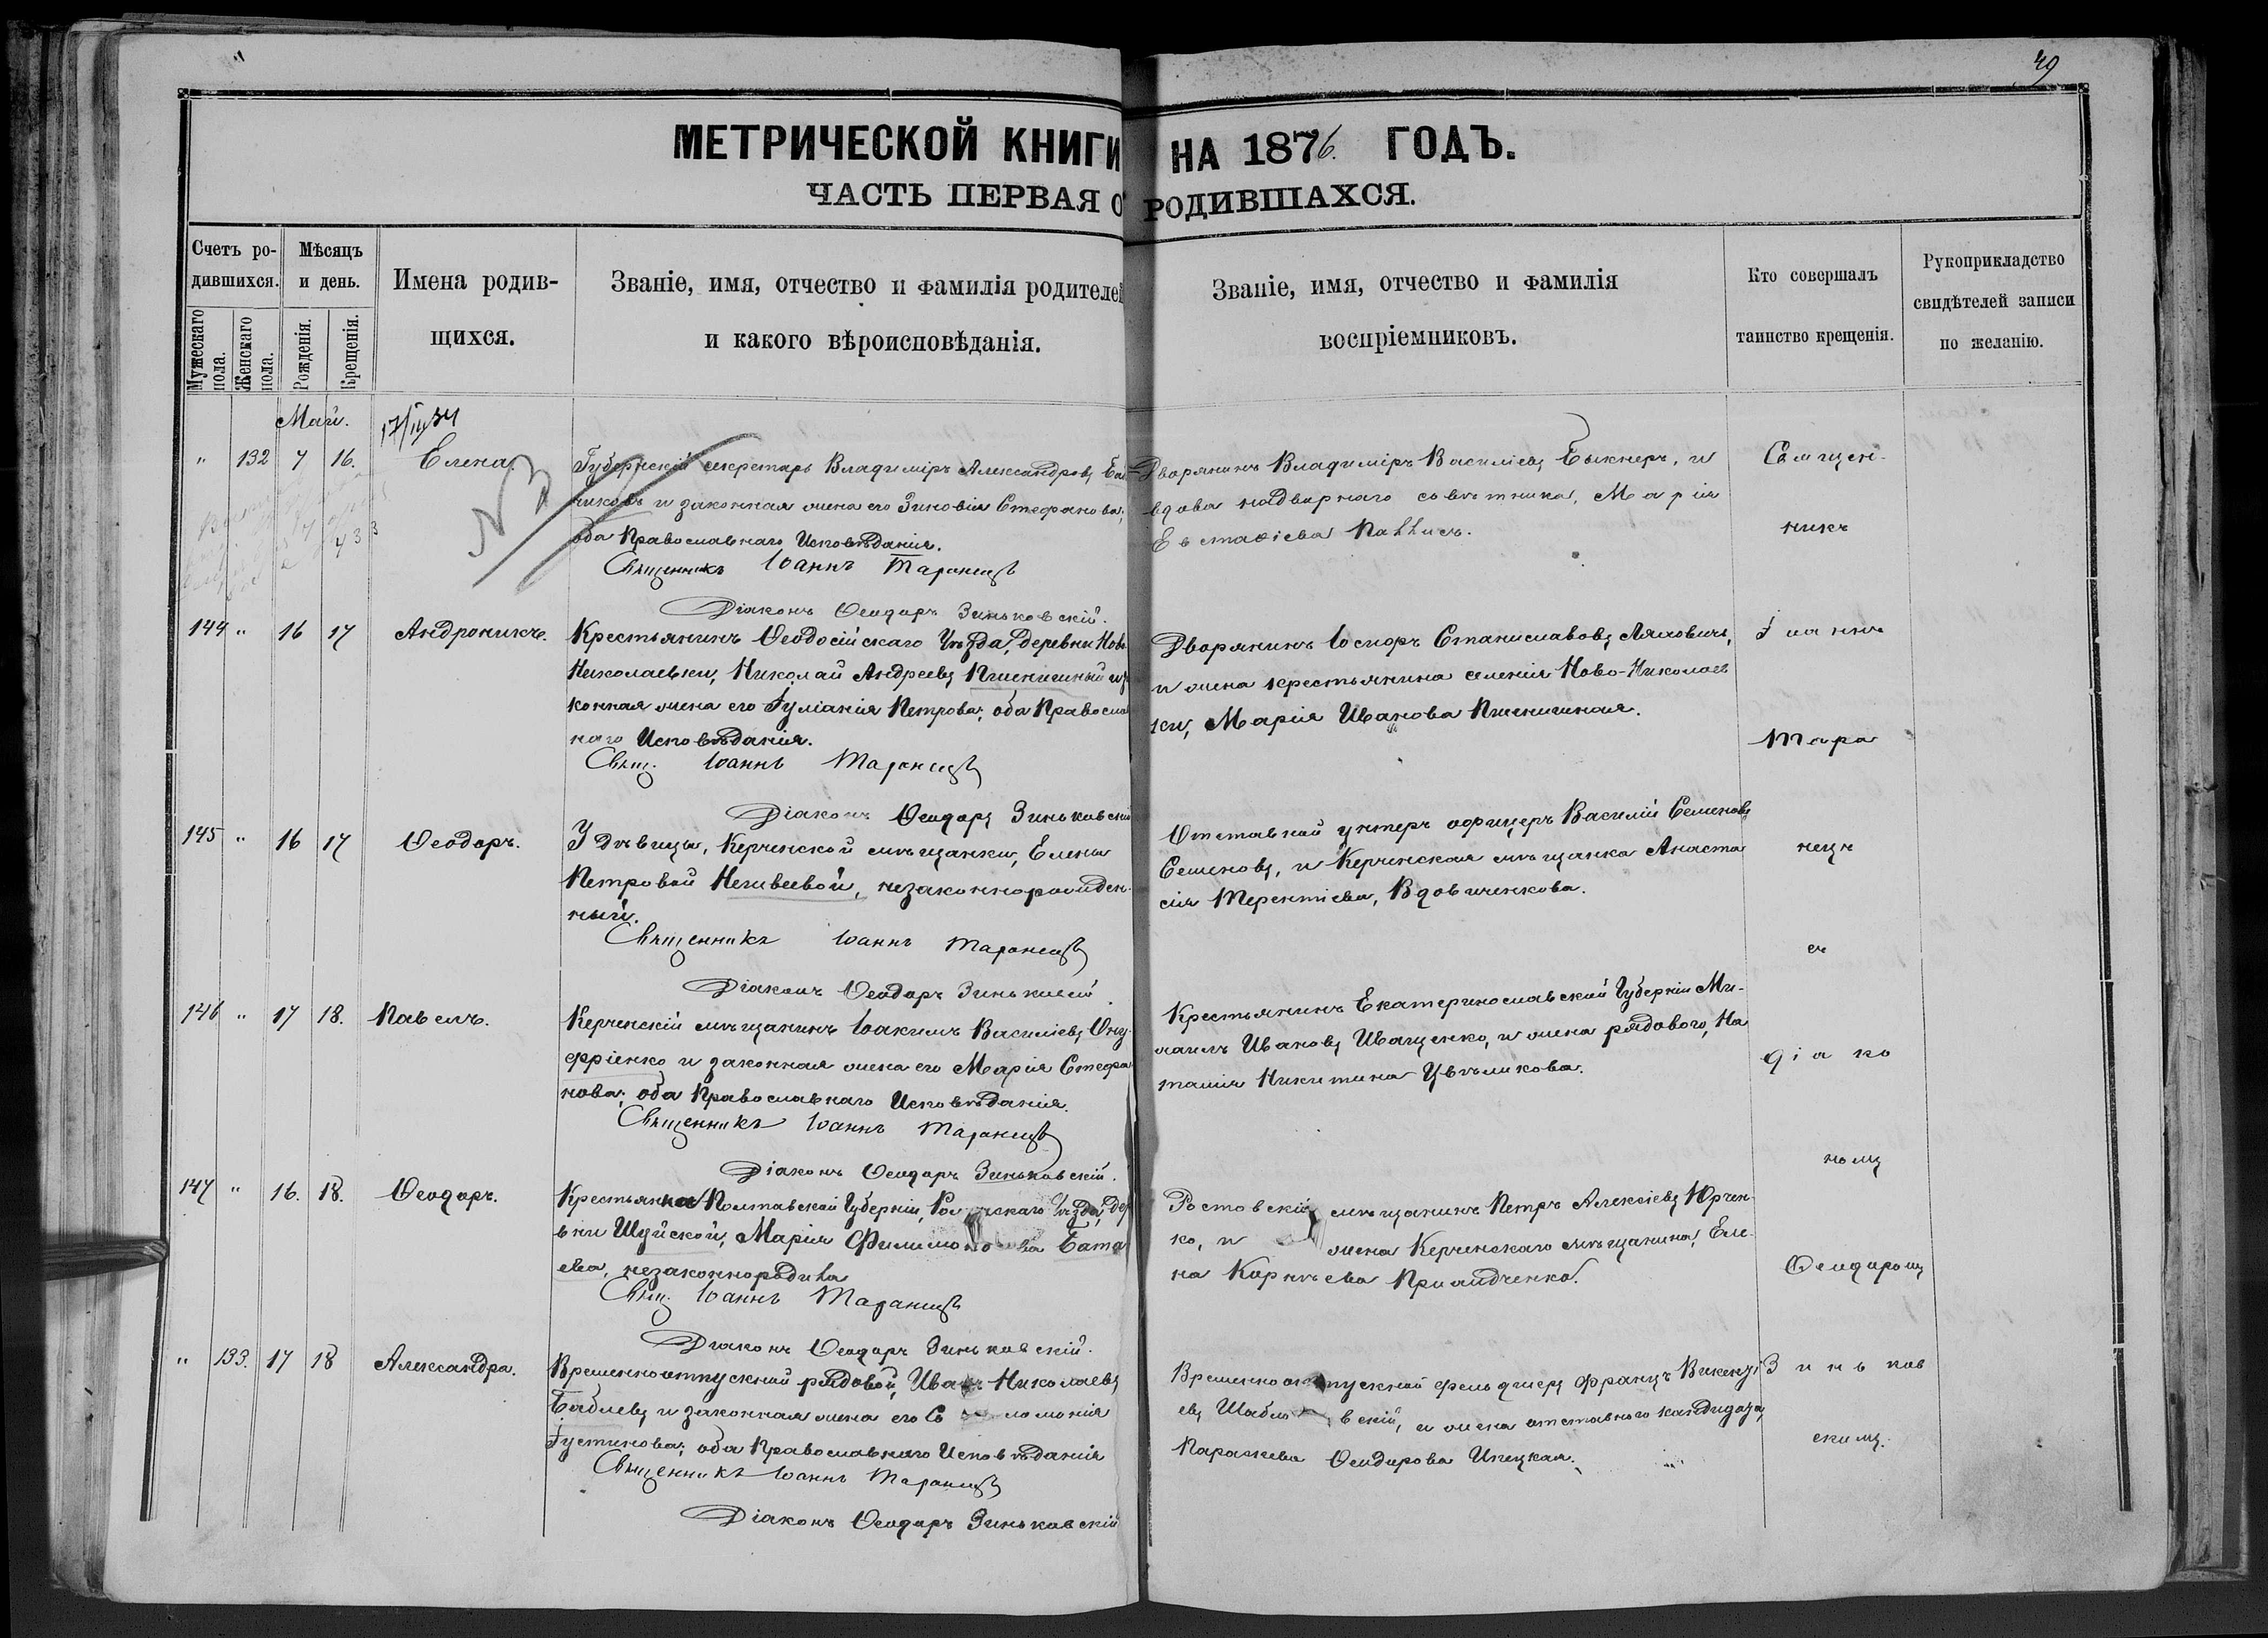 49
МЕТРИЧЕСКОЙ КНИГИ НА 1876. ГОДЪ.
ЧАСТЬ ПЕРВАЯ О РОДИВШАХСЯ.
Счетъ ро-
дившихся.
Мужескаго пола.
Женскаго пола.
Мѣсяцъ
и день.
Рожденія.
Крещенія.
Имена родив-
щихся.
Званіе, имя, отчество и фамилія родителей
и какого вѣроисповѣданія.
Званіе, имя, отчество и фамилія
воспріемниковъ.
Кто совершалъ
таинство крещенія.
Рукоприкладство
свидѣтелей записи
по желанію.
Май.
17/III 34
" 132 7 16. Елена.
Губернскій секретарь Владиміръ Александровъ
и законная жена его Зиновія Стефанова,
оба Православнаго Исповѣданія.
Священникъ Іоаннъ Таранецъ
Діаконъ Ѳеодоръ Зиньковскій.
Дворянинъ Владиміръ Василіевъ Быкнеръ, и
вдова надворнаго совѣтника, Марія
Евстаѳіева
144 " 16 17 Андроникъ.
Крестьянинъ Ѳеодосійскаго Уѣзда, деревни Ново
Николаевки, Николай Андреевъ Пшеничный и за
конная жена его Іуліанія Петрова; оба Православ
наго Исповѣданія.
Свящ. Іоаннъ Таранецъ
Діаконъ Ѳеодоръ Зиньковскій
Дворянинъ Іосифъ Станиславовъ Ляховичъ,
и жена крестьянина селенія Ново-Николаев
ки, Марія Иванова Пшеничная.
145 " 16 17 Ѳеодоръ.
У Дѣвицы, Керченской мѣщанки, Елены
Петровой Нечивеевой, незаконнорожден-
ный.
Священникъ Іоаннъ Таранецъ
Діаконъ Ѳеодоръ Зиньковскій
Отставной унтеръ офицеръ Василій Семеновъ
Семеновъ, и Керченская мѣщанка Анаста
сія Терентіева, Вдовиченкова.
146 " 17 18. Павелъ.
Керченскій мѣщанинъ Іоакимъ Василіевъ Ону-
фріенко и законная жена его Марія Стефа
нова; оба Православнаго Исповѣданія.
Священникъ Іоаннъ Таранецъ
Діаконъ Ѳеодоръ Зиньковскій.
Крестьянинъ Екатеринославской Губерніи Ми-
хаилъ Ивановъ Иващенко, и жена рядового, На
талія Никитина Цвѣликова.
147 " 16. 18. Ѳеодоръ.
Крестьянка Полтавской Губерніи, Уѣзда, дер
вни Шуйской, Марія Филимонова
ева, незаконнородила
Свящ. Іоаннъ Таранецъ
Діаконъ Ѳеодоръ Зиньковскій.
Ростовскій мѣщанинъ Петръ Алексіевъ Юрчен
ко, и жена Керченскаго мѣщанина, Еле-
на Корнѣева
" 133. 17 18 Александра.
Временноотпускной рядовой, Иванъ Николаевъ
Бабаевъ и законная жена его Соломонія
Іустинова; оба Православнаго Исповѣданія
Священникъ Іоаннъ Таранецъ
Діаконъ Ѳеодоръ Зиньковскій
Временноотпускной фельдшеръ Францъ Викентi
евъ скій, и жена отставного кандидата,
Параскева Ѳеодорова
Священ-
никъ
Іоаннъ
Тара
нецъ
съ
діако
номъ
Ѳеодоромъ
Зиньков
скимъ.